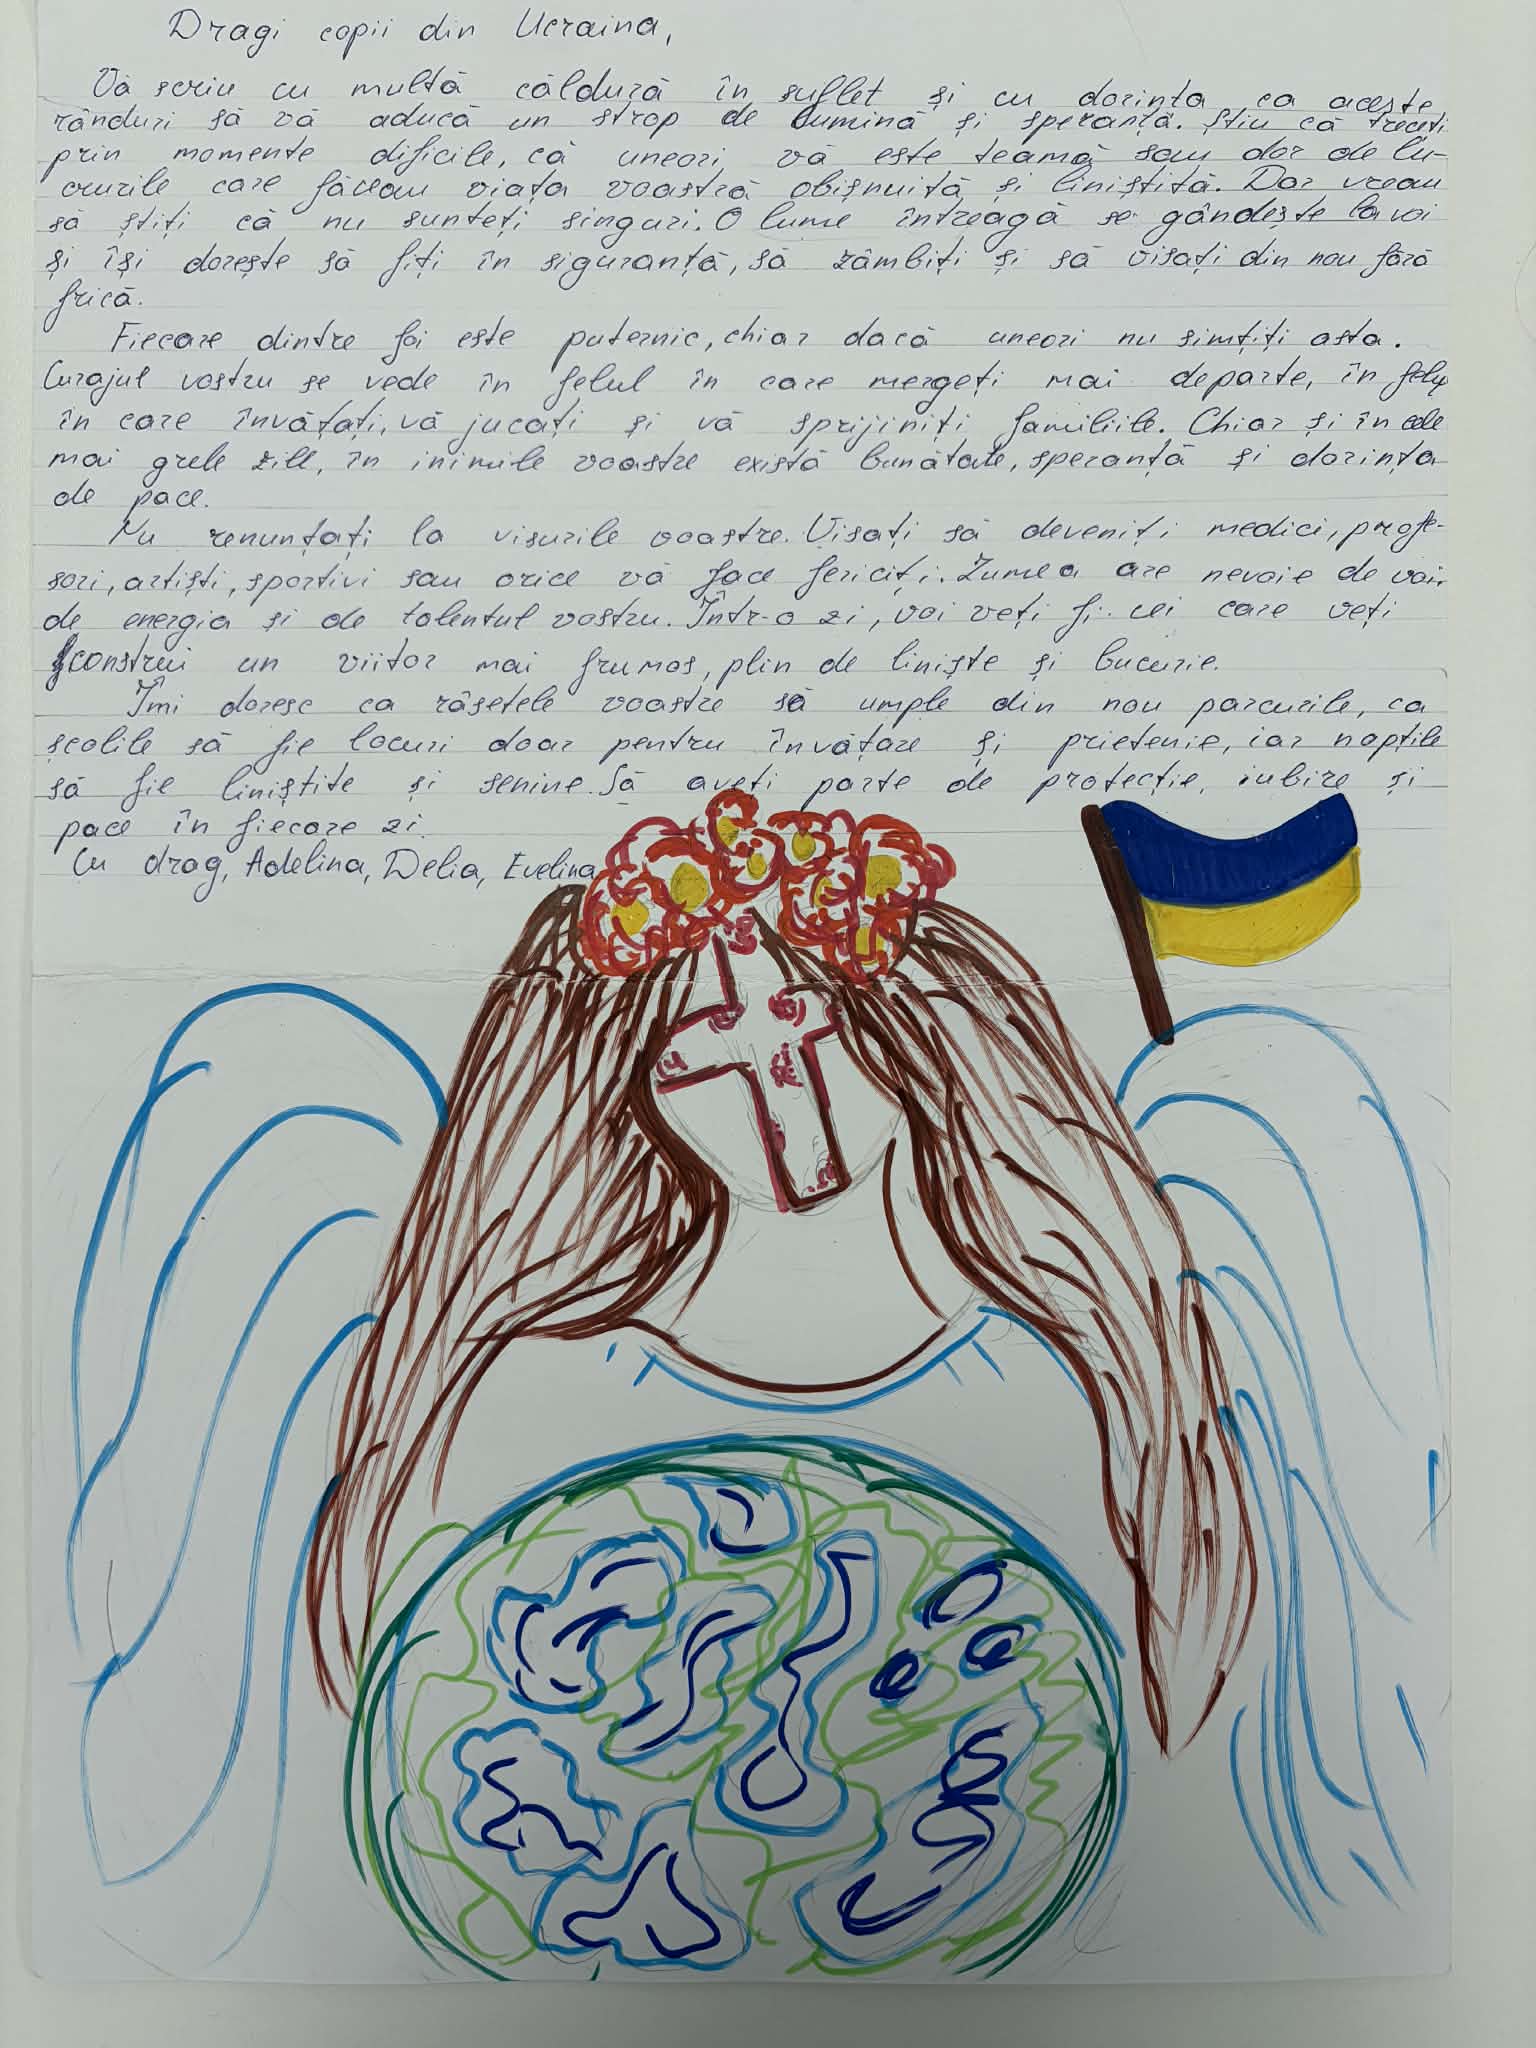 Dragi copii din Ucraina,
Vă scriu cu multă căldură în suflet și cu dorința ca aceste
rânduri să vă aducă un strop de lumină și speranță. Știu că treceți
prin momente dificile, că uneori vă este teamă sau dor de lu-
crurile care făceau viața voastră obișnuită și liniștită. Dar vreau
să știți că nu sunteți singuri. O lume întreagă se gândește la voi
și își dorește să fiți în siguranță, să zâmbiți și să visați din nou fără
frică.
Fiecare dintre foi este puternic, chiar dacă uneori nu simțiți asta.
Curajul vostru se vede în felul în care mergeți mai departe, în felul
în care învățați, vă jucați și vă sprijiniți familiile. Chiar și în cele
mai grele zile, în inimile voastre există bunătate, speranță și dorința
de pace.
Nu renunțați la visurile voastre. Visați să deveniți medici, profe-
sori, artiști, sportivi sau orice vă face fericiți. Lumea are nevoie de voi,
de energia și de talentul vostru. Într-o zi, voi veți fi cei care veți
construi un viitor mai frumos, plin de liniște și bucurie.
Îmi doresc ca râsetele voastre să umple din nou parcurile, ca
școlile să fie locuri doar pentru învățare și prietenie, iar nopțile
să fie liniștite și senine. Să aveți parte de protecție, iubire și
pace în fiecare zi.
Cu drag, Adelina, Delia, Evelina